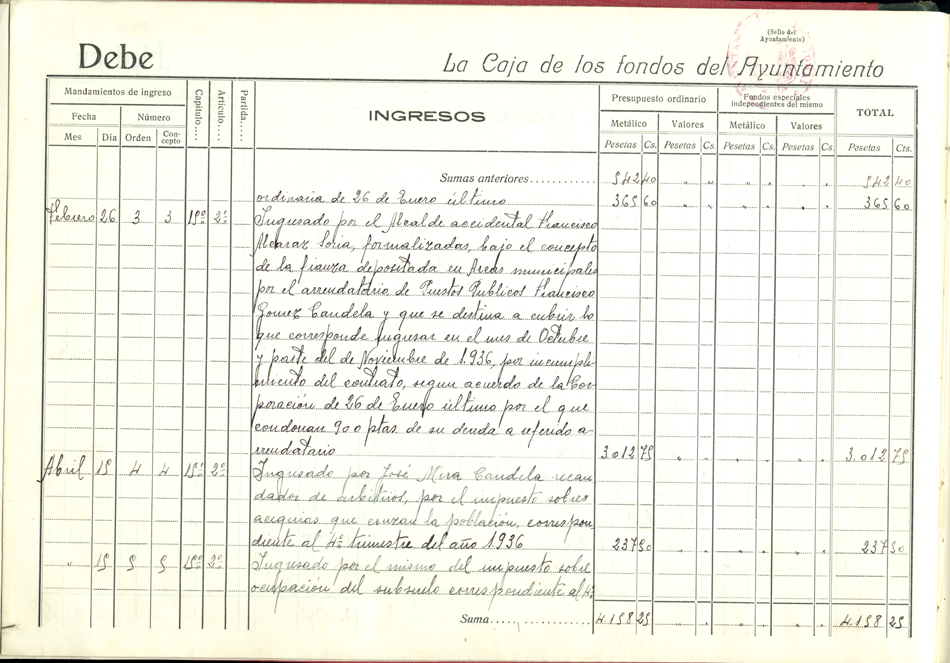 (Sello del
Ayuntamiento)
Debe
La Caja de los fondos del Ayuntamiento
Mandamientos de ingreso Capítulo.... Artículo.... Partida.... INGRESOS Presupuesto ordinario Fondos especiales independientes del mismo TOTAL
Fecha Número Metálico Valores Metálico Valores
Mes Día Orden Concepto Pesetas Cs. Pesetas Cs. Pesetas Cs. Pesetas Cs. Pesetas Cts.
Sumas anteriores............ 542 40 " " " " " " 542 40
ordinaria de 26 de Enero último 365 60 " " " " " " 365 60
Febrero 26 3 3 15º 2º Ingresado por el Alcalde accidental Francisco
Alcaraz Soria, formalizadas, bajo el concepto
de la fianza depositada en Arcas municipales
por el arrendatario de Puestos Publicos Francisco
Gomez Candela y que se destina a cubrir lo
que corresponde ingresar en el mes de Octubre
y parte del de Noviembre de 1.936, por incumpli-
miento del contrato, segun acuerdo de la Cor-
poración de 26 de Enero último por el que
condonan 900 ptas. de su deuda a referido a-
rrendatario 3.012 75 " " " " " " 3.012 75
Abril 15 4 4 15º 2º Ingresado por José Mira Candela recau
dador de arbitrios, por el impuesto sobre
acequias que cruzan la población, correspon
diente al 4º trimestre del año 1936 237 50 " " " " " " 237 50
" 15 5 5 15º 2º Ingresado por el mismo del impuesto sobre
ocupación del subsuelo correspondiente al 4º
Suma.................... 4.158 25 " " " " " " 4.158 25